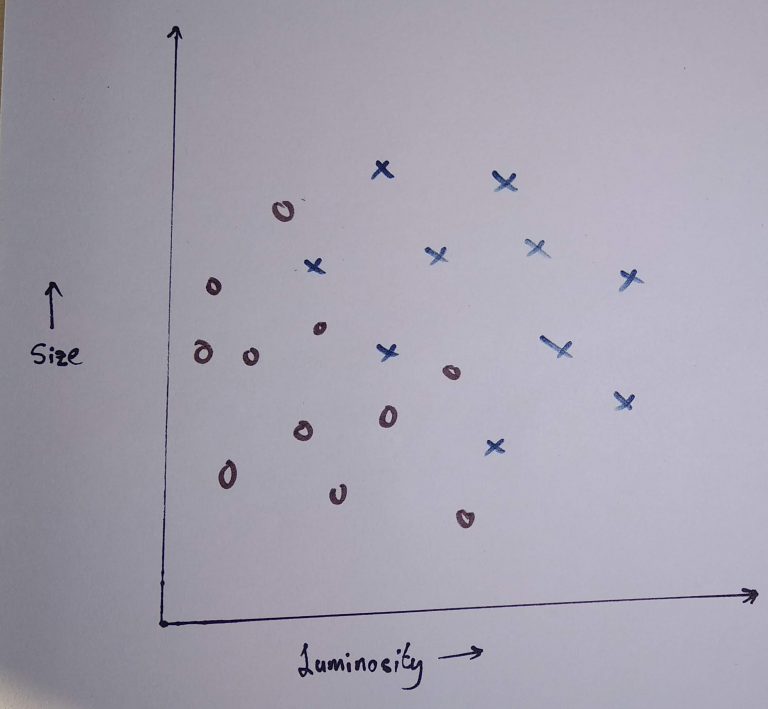 Size
Luminosity